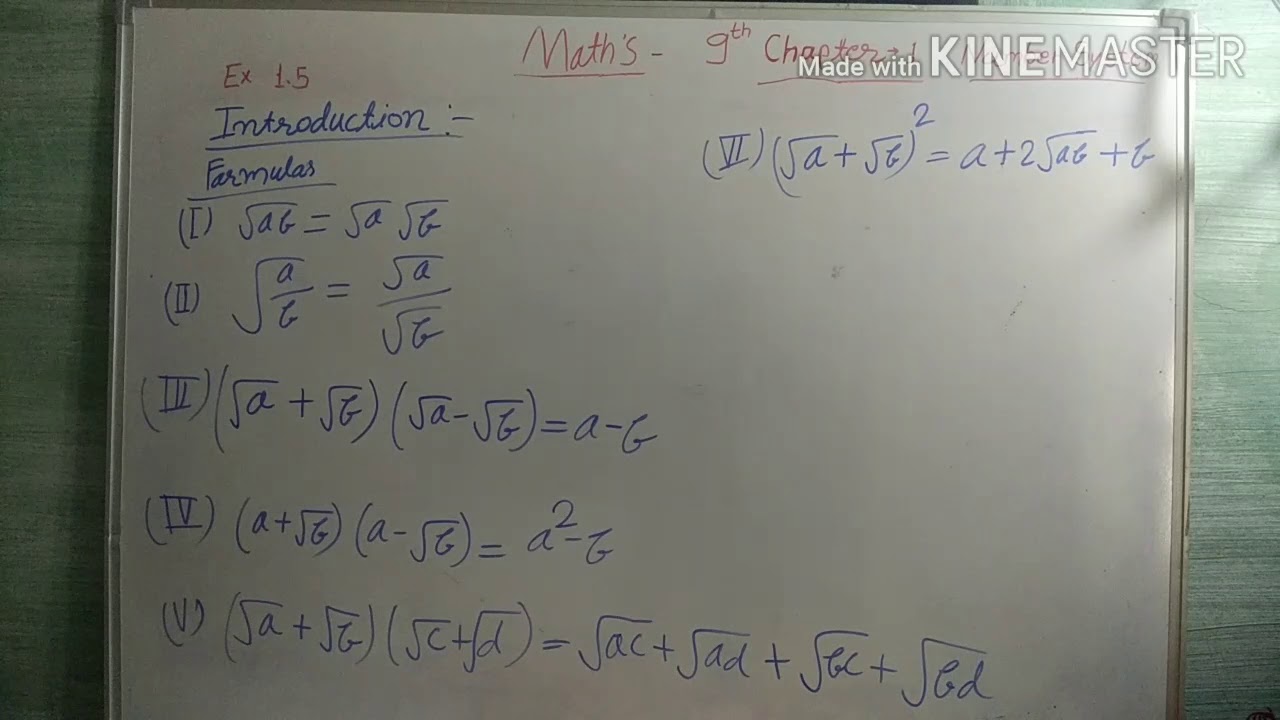 Math's - 9th Chapter-1 Number System
Made with KINEMASTER
Ex 1.5
Introduction :-
Farmulas
(I) √ab = √a √b
(II) √(a/b) = √a/√b
(III) (√a + √b) (√a - √b) = a - b
(IV) (a + √b) (a - √b) = a² - b
(V) (√a + √b) (√c + √d) = √ac + √ad + √bc + √bd
(VI) (√a + √b)² = a + 2√ab + b